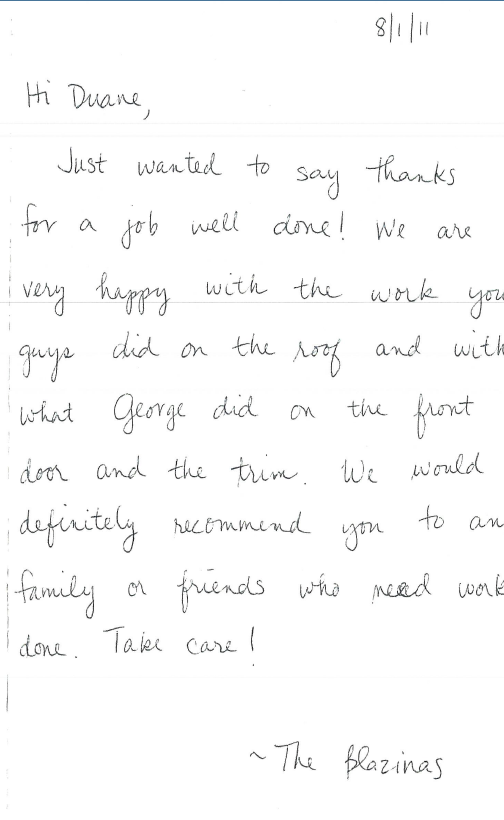 8/1/11
Hi Duane,
Just wanted to say thanks
for a job well done! We are
very happy with the work you
guys did on the roof and with
what George did on the front
door and the trim. We would
definitely recommend you to an
family or friends who need work
done. Take care!
~ The Blazinas